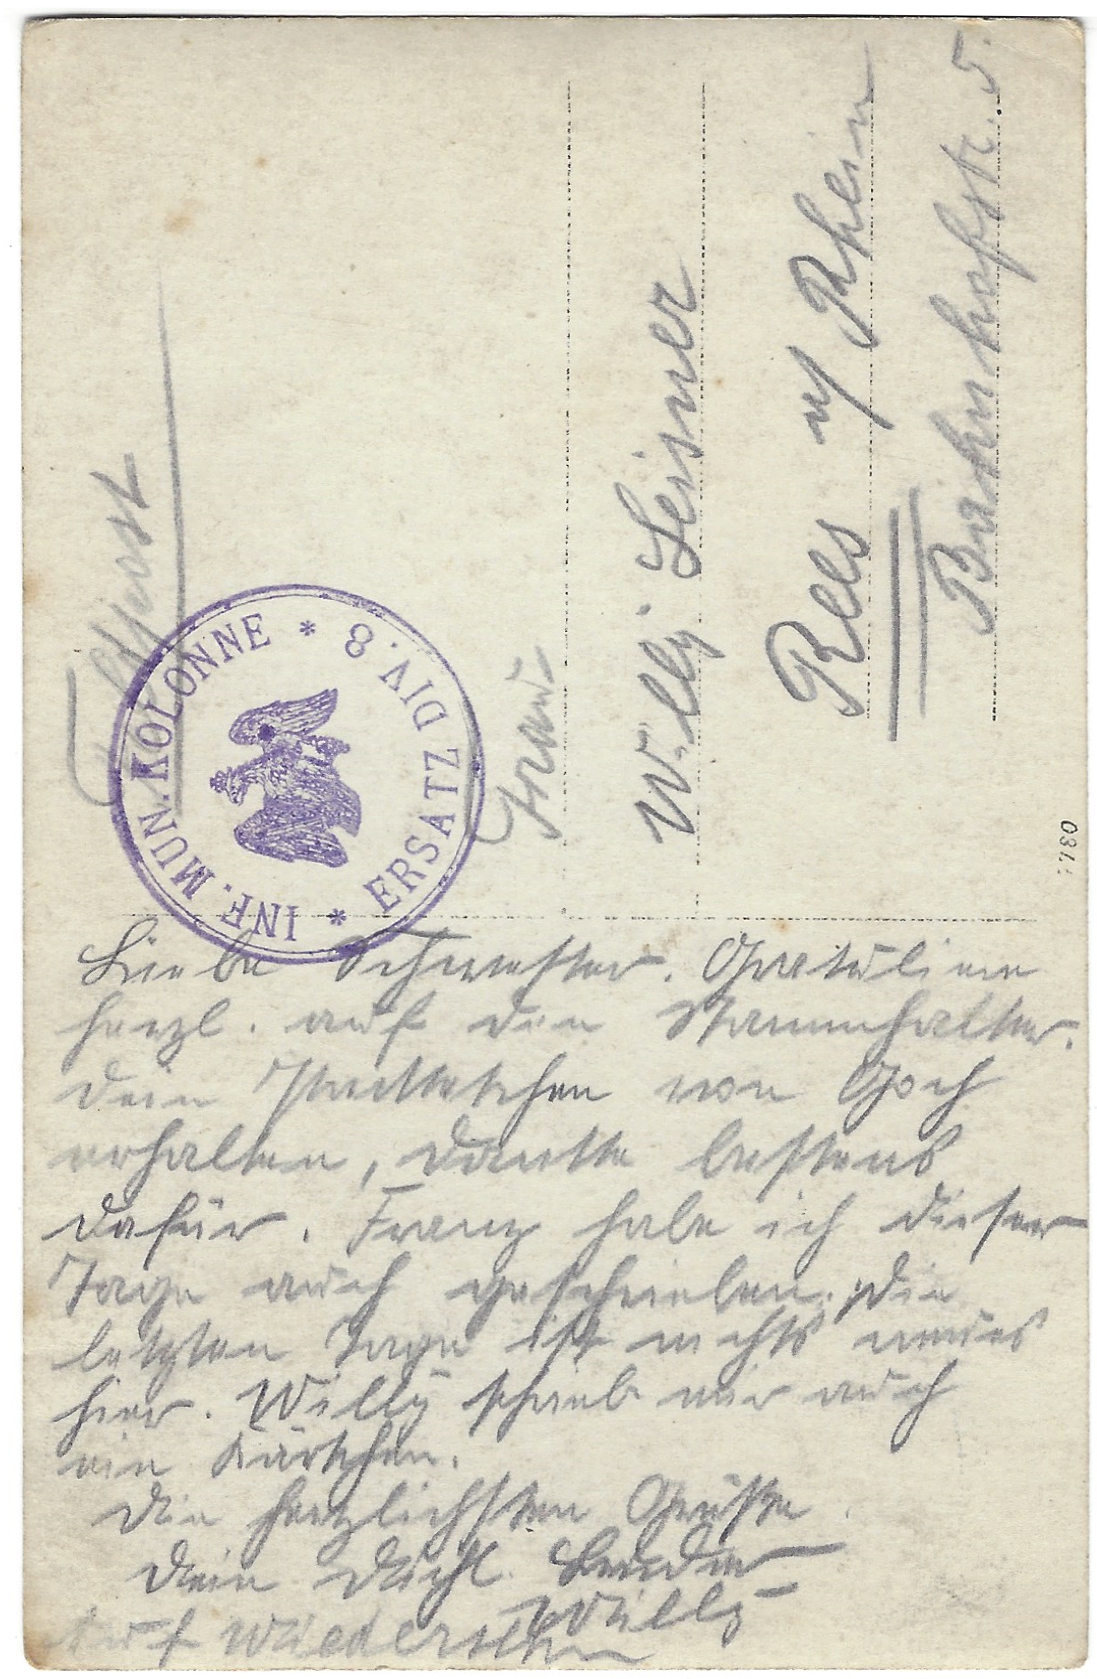 Feldpost
INF. MUN. KOLONNE * ERSATZ DIV. 8. *
Frau
Willy Leisner
Rees a/ Rhein
Bahnhofstr. 5
Liebe Schwester. Gratuliere
herzl. auf den Stammhalter.
Dein Packetchen von Goch
erhalten, danke bestens
dafür. Franz habe ich dieser
Tage auch geschrieben. Die
letzten Tage ist nichts neues
hier. Willy schrieb mir auch
ein Kärtchen.
Die herzlichsten Grüße
Dein Bruder
Willy
Auf Wiedersehn